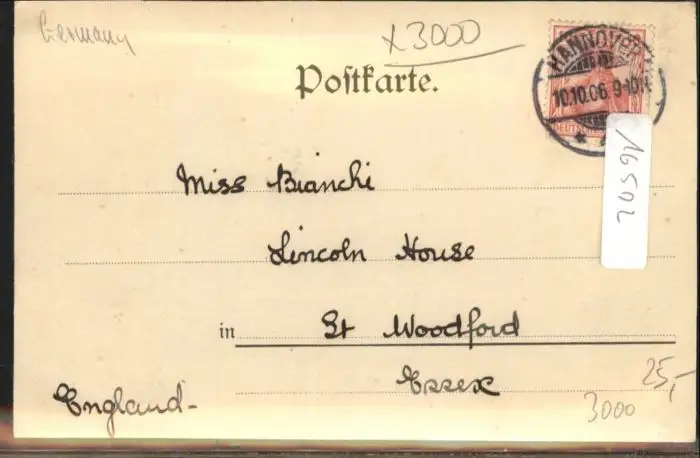 Germany
x3000
HANNOVER
10.10.06 9-10V
DEUTSCHES
Postkarte.
16502
Miss Bianchi
Lincoln House
in St Woodford
Essex
England-
25,-
3000